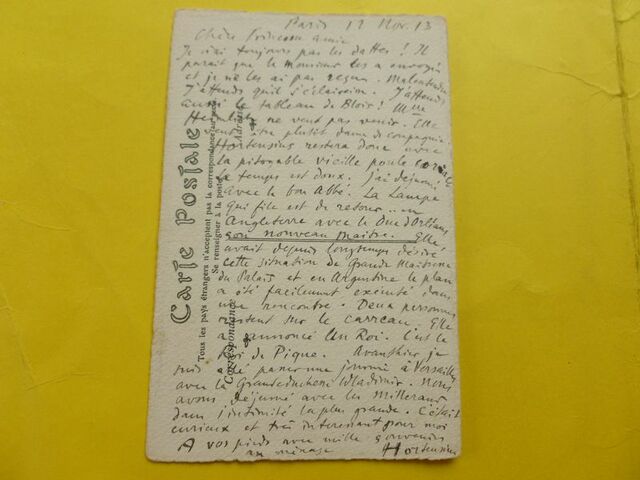 Paris 12 Nov. 13
Chère Princesse amie
Je n'ai toujours pas les dattes ! Il
parait que le monsieur les a envoyés
et je ne les ai pas reçus. Malentendu
J'attends qu'il s'éclaircim. J'attends
aussi le tableau de Blois ! Mlle
ne veut pas venir. Elle
veut être plutôt dame de compagnie.
Hortensius restera donc avec
la pitoyable vieille poule
Le temps est doux. J'ai déjeuné
avec le bon Abbé. La Lampe
qui file est de retour ... en
Angleterre avec le Duc d'Orléans
son nouveau maître. Elle
avait depuis longtemps désiré
cette situation de Grande Maîtresse
du Palais et en Argentine le plan
a été facilement exécuté dans
une rencontre. Deux personnes
restent sur le carreau. Elle
a annoncé Un Roi. C'est le
Roi de Pique. Avanthier je
suis allé passer une journée à Versailles
avec la Grande duchesse Wladimir. Nous
avons déjeuné avec les Millerand
dans l'intimité la plus grande. C'était
curieux et très interessant pour moi
A vos pieds avec mille souvenirs
au ménage Hortensius
Carte Postale
Tous les pays étrangers n'acceptent pas la correspondance au recto
Se renseigner à la poste
Correspondance
Adresse